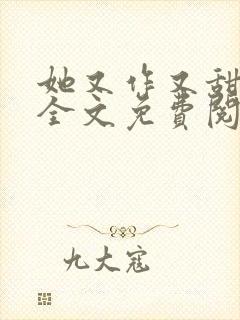 她又作又甜
全文免费阅
九大寇